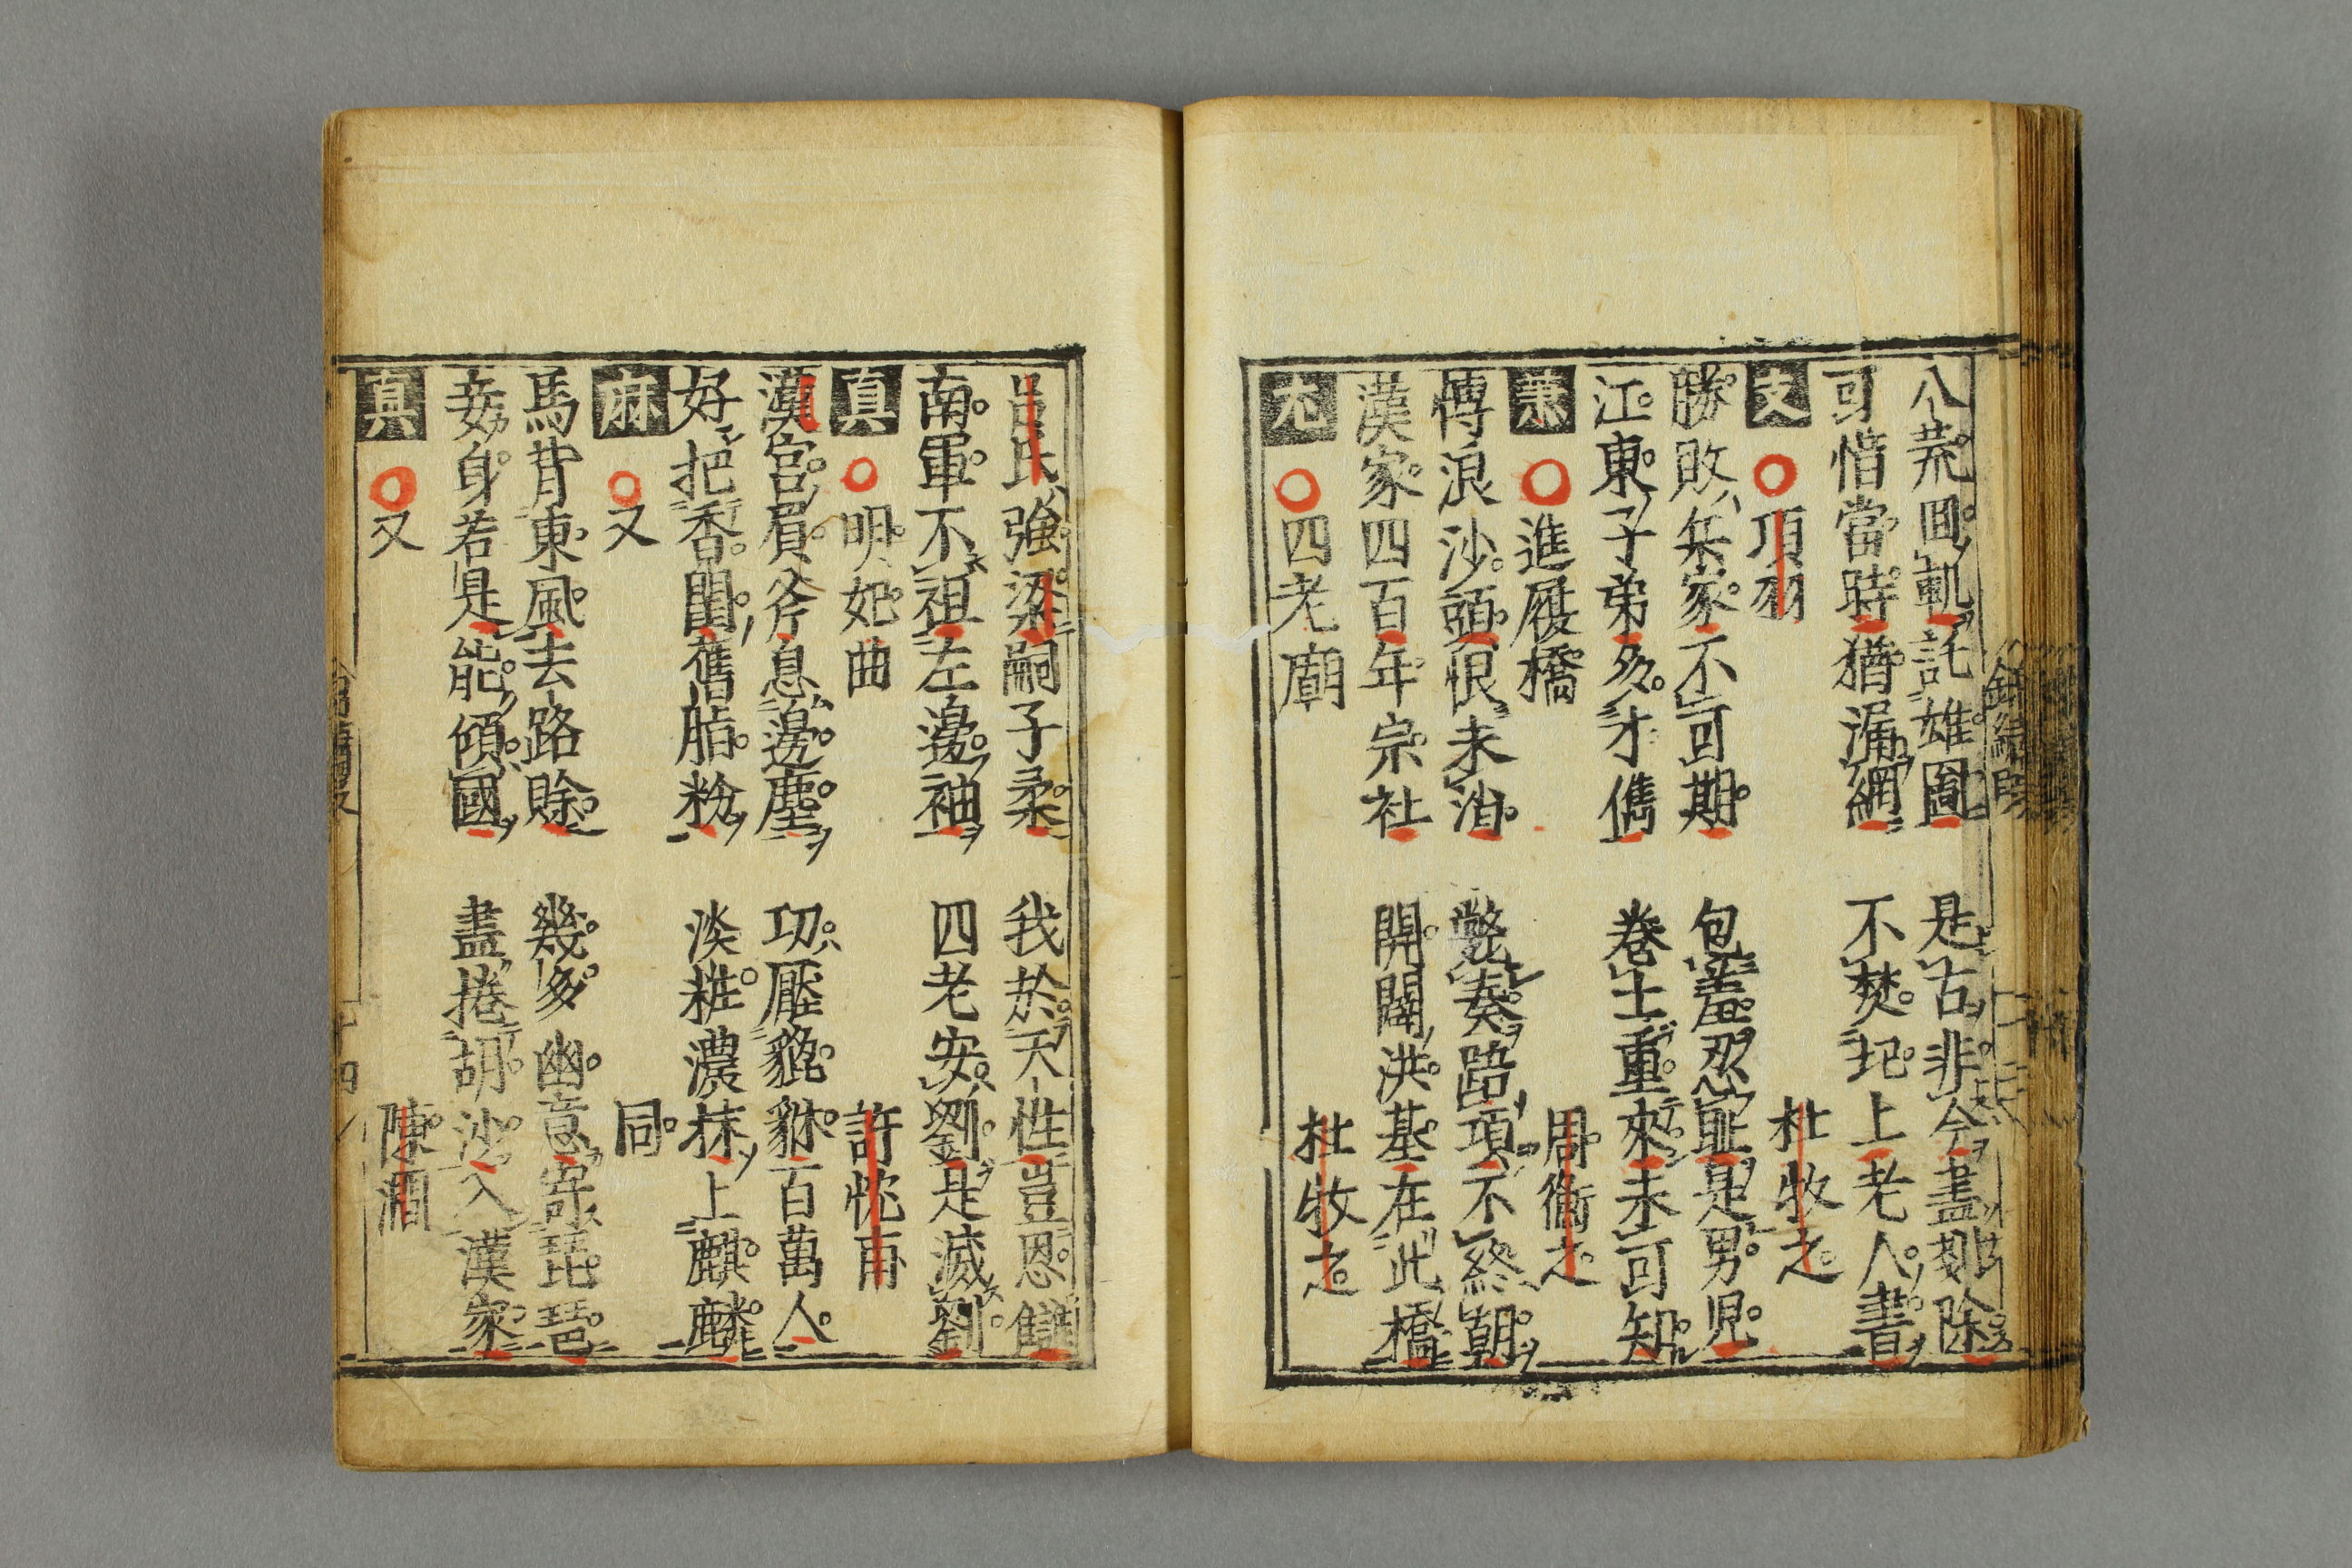 八荒回軌託雄圖 是古非今盡掃除
可惜當時猶漏網 不焚圯上老人書
支 項羽 杜牧之
勝敗兵家不可期 包羞忍恥是男兒
江東子弟多才儁 卷土重來未可知
蕭 進履橋 周衡之
博浪沙頭恨未消 斃秦踣項不終朝
漢家四百年宗社 開闢洪基在此橋
尤 四老廟 杜牧之
呂氏強梁嗣子柔 我於天性豈恩讎
南軍不袒左邊袖 四老安劉是滅劉
真 明妃曲 許忱甫
漢宮眉斧息邊塵 功壓貔貅百萬人
好把香閨舊脂粉 淡粧濃抹上麒麟
麻 又 同
馬背東風去路賒 幾多幽意寄琵琶
妾身若是能傾國 盡捲胡沙入漢家
真 又 陳涸